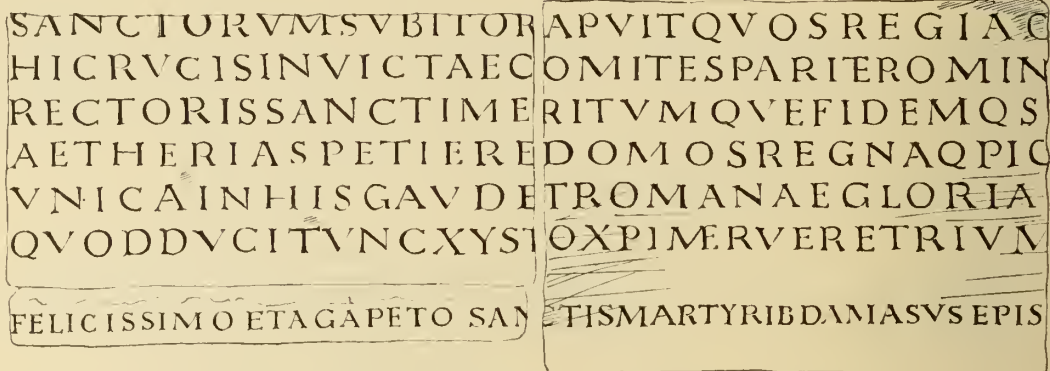 SANCTORVMSVBITORAPVITQVOSREGIAC
HICRVCISINVICTAECOMITESPARITEROMIN
RECTORISSANCTIMERITVMQVEFIDEMQS
AETHERIASPETIEREDOMOSREGNAQPIC
VNICAINHISGAVDETROMANAEGLORIA
QVODDVCITVNCXYSTOXPIMERVERETRIVM
FELICISSIMO ETAGAPETO SANCTISMARTYRIBDAMASVS EPIS